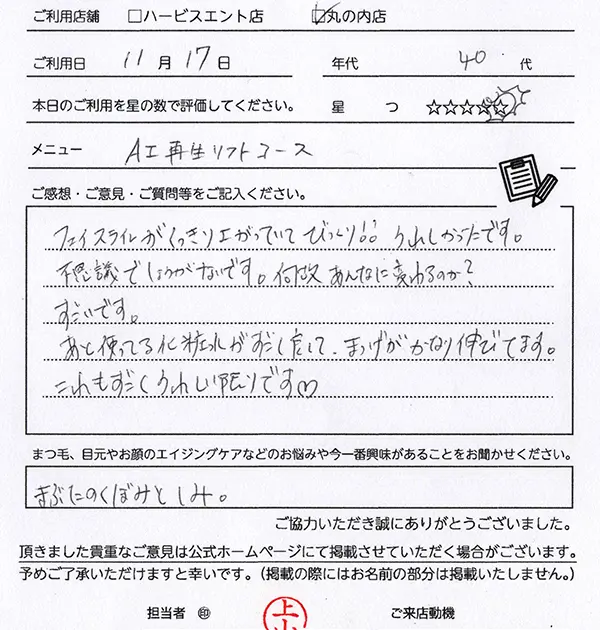 ご利用店舗 □ハービスエント店 ☑丸の内店
ご利用日 11月17日 年代 40代
本日のご利用を星の数で評価してください。 星 つ ☆☆☆☆☆
メニュー AI再生リフトコース
ご感想・ご意見・ご質問等をご記入ください。
フェイスラインがくっきり上がっていて びっくり!! うれしかったです。
不思議でしょうがないです。何故あんなに変わるのか?
すごいです。
あと使ってる化粧水がすごく良くて、まつげがかなり伸びてます。
これもすごくうれしい限りです♡
まつ毛、目元やお顔のエイジングケアなどのお悩みや今一番興味があることをお聞かせください。
まぶたのくぼみとしみ。
ご協力いただき誠にありがとうございました。
頂きました貴重なご意見は公式ホームページにて掲載させていただく場合がございます。
予めご了承いただけますと幸いです。（掲載の際にはお名前の部分は掲載いたしません。）
担当者 ㊞ 上 ご来店動機